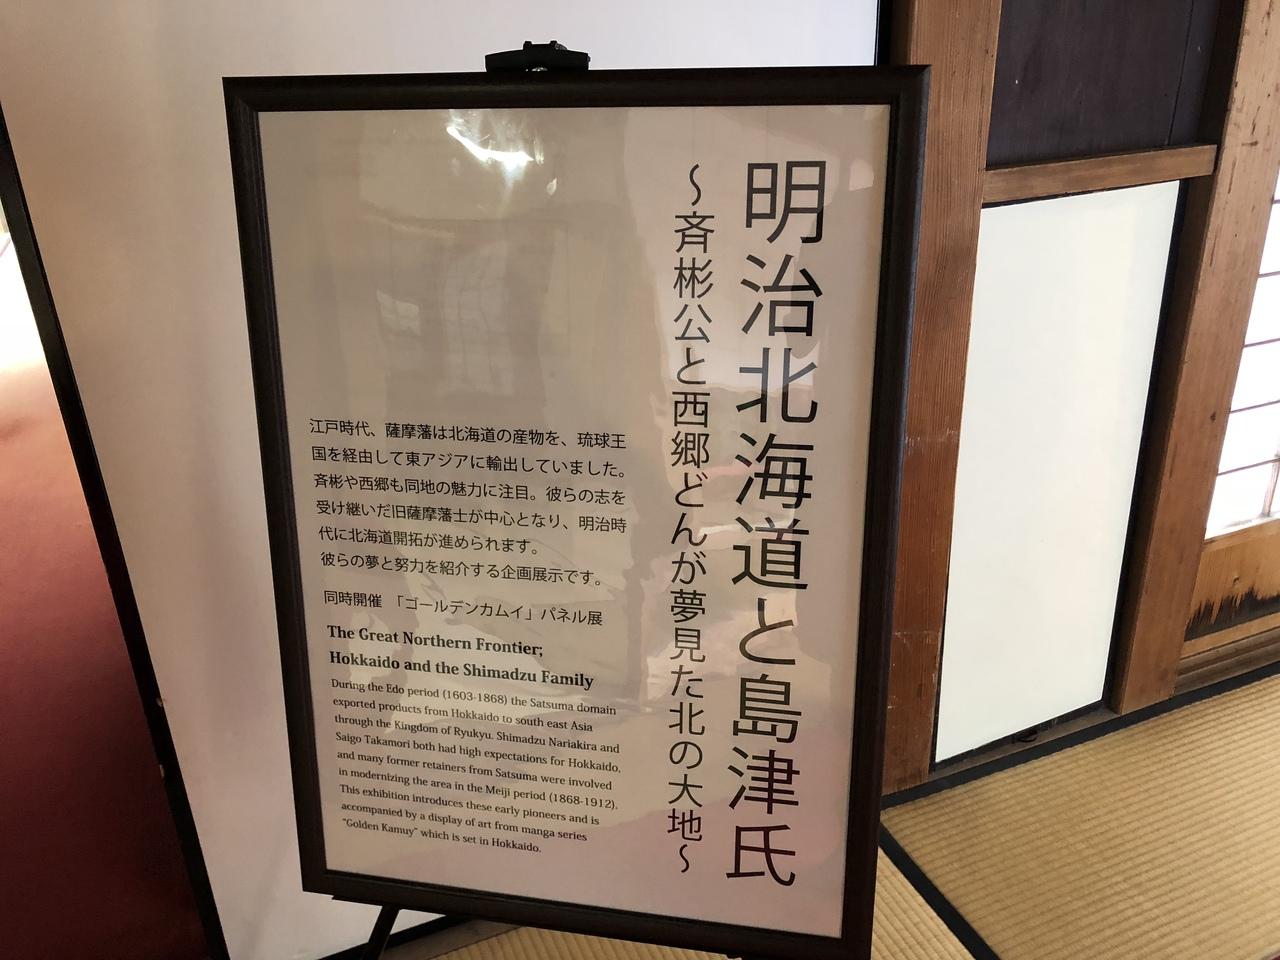 明治北海道と島津氏
～斉彬公と西郷どんが夢見た北の大地～
江戸時代、薩摩藩は北海道の産物を、琉球王
国を経由して東アジアに輸出していました。
斉彬や西郷も同地の魅力に注目。彼らの志を
受け継いだ旧薩摩藩士が中心となり、明治時
代に北海道開拓が進められます。
彼らの夢と努力を紹介する企画展示です。
同時開催 「ゴールデンカムイ」パネル展
The Great Northern Frontier;
Hokkaido and the Shimadzu Family
During the Edo period (1603-1868) the Satsuma domain
exported products from Hokkaido to south east Asia
through the Kingdom of Ryukyu. Shimadzu Nariakira and
Saigo Takamori both had high expectations for Hokkaido,
and many former retainers from Satsuma were involved
in modernizing the area in the Meiji period (1868-1912).
This exhibition introduces these early pioneers and is
accompanied by a display of art from manga series
"Golden Kamuy" which is set in Hokkaido.